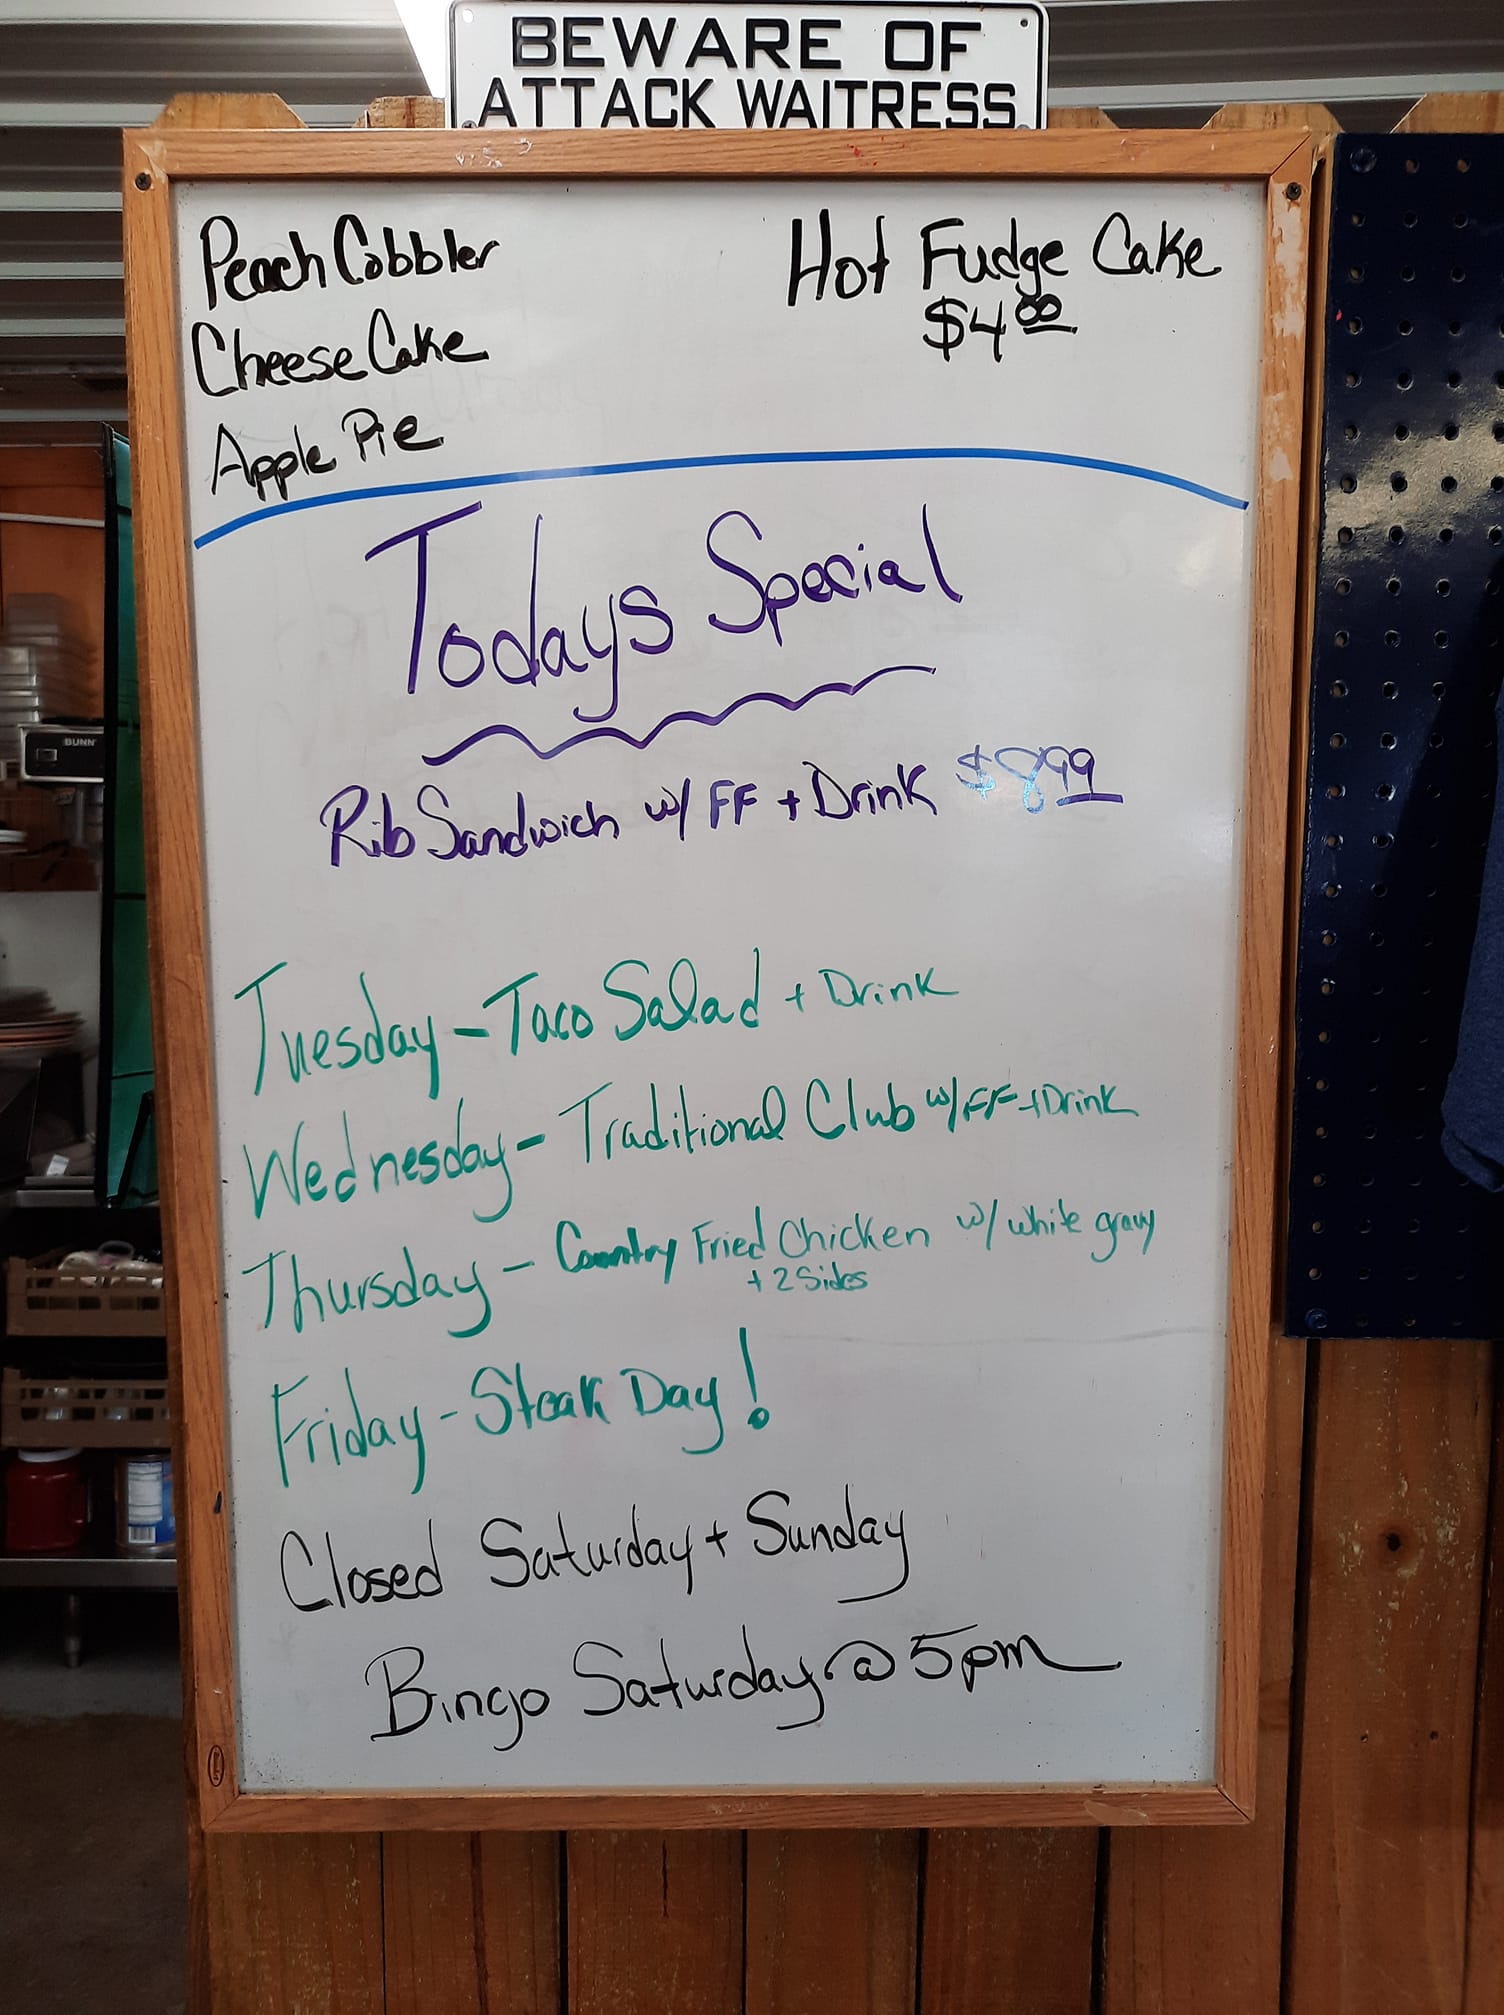 BEWARE OF
ATTACK WAITRESS
Peach Cobbler
Cheese Cake
Apple Pie
Hot Fudge Cake
$4.00
Todays Special
Rib Sandwich w/ FF + Drink $8.99
Tuesday - Taco Salad + Drink
Wednesday - Traditional Club w/ FF + Drink
Thursday - Country Fried Chicken w/ white gravy
+ 2 Sides
Friday - Steak Day!
Closed Saturday + Sunday
Bingo Saturday @ 5pm
BUNN